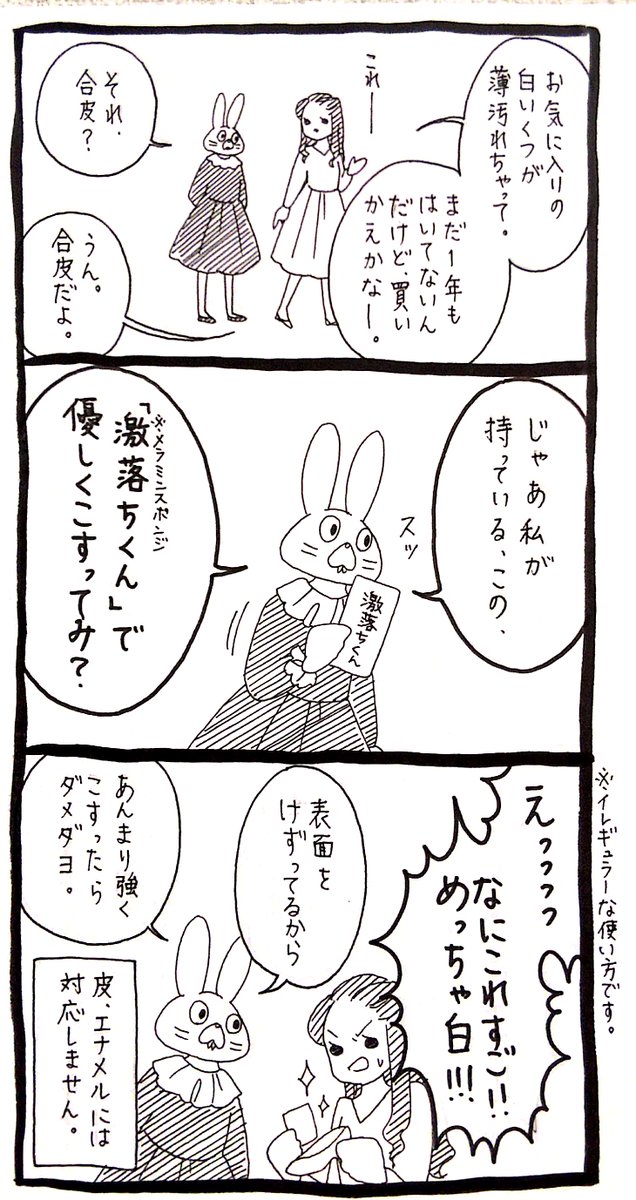 お気に入りの
白いくつが
薄汚れちゃって。
まだ1年も
はいてないん
だけど、買い
かえかなー。
これー
それ、
合皮？
うん。
合皮だよ。
じゃあ私が
持っている、この、
スッ
激落ちくん
※メラミンスポンジ
「激落ちくん」で
優しくこすってみ？
えっっっっ
なにこれすご!!
めっちゃ白!!!
表面を
けずってるから
あんまり強く
こすったら
ダメダヨ。
皮、エナメルには
対応しません。
※イレギュラーな使い方です。